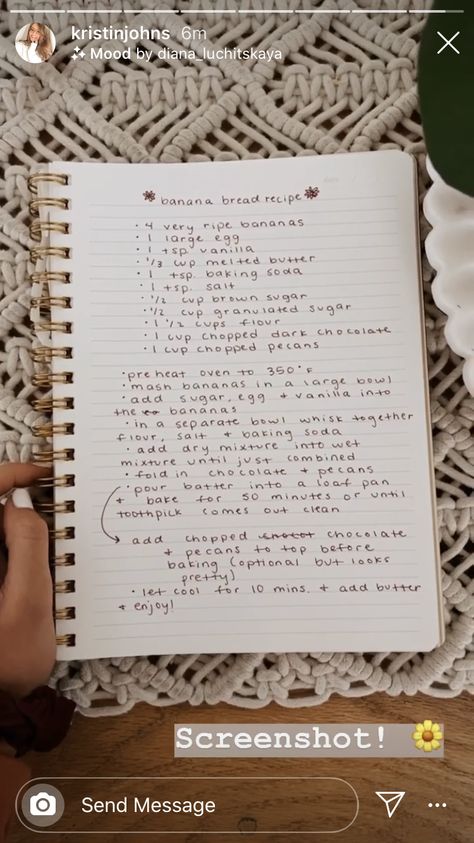 kristinjohns 6m
Mood by diana_luchitskaya
banana bread recipe
· 4 very ripe bananas
· 1 large egg
· 1 tsp. vanilla
· 1/3 cup melted butter
· 1 tsp. baking soda
· 1 tsp. salt
· 1/2 cup brown sugar
· 1/2 cup granulated sugar
· 1 1/2 cups flour
· 1 cup chopped dark chocolate
· 1 cup chopped pecans
· preheat oven to 350°F
· mash bananas in a large bowl
· add sugar, egg + vanilla into
the bananas
· in a separate bowl whisk together
flour, salt + baking soda
· add dry mixture into wet
mixture until just combined
· fold in chocolate + pecans
· pour batter into a loaf pan
+ bake for 50 minutes or until
toothpick comes out clean
add chopped chocolate
+ pecans to top before
baking (optional but looks
pretty)
· let cool for 10 mins. + add butter
+ enjoy!
Screenshot! 🌼
Send Message